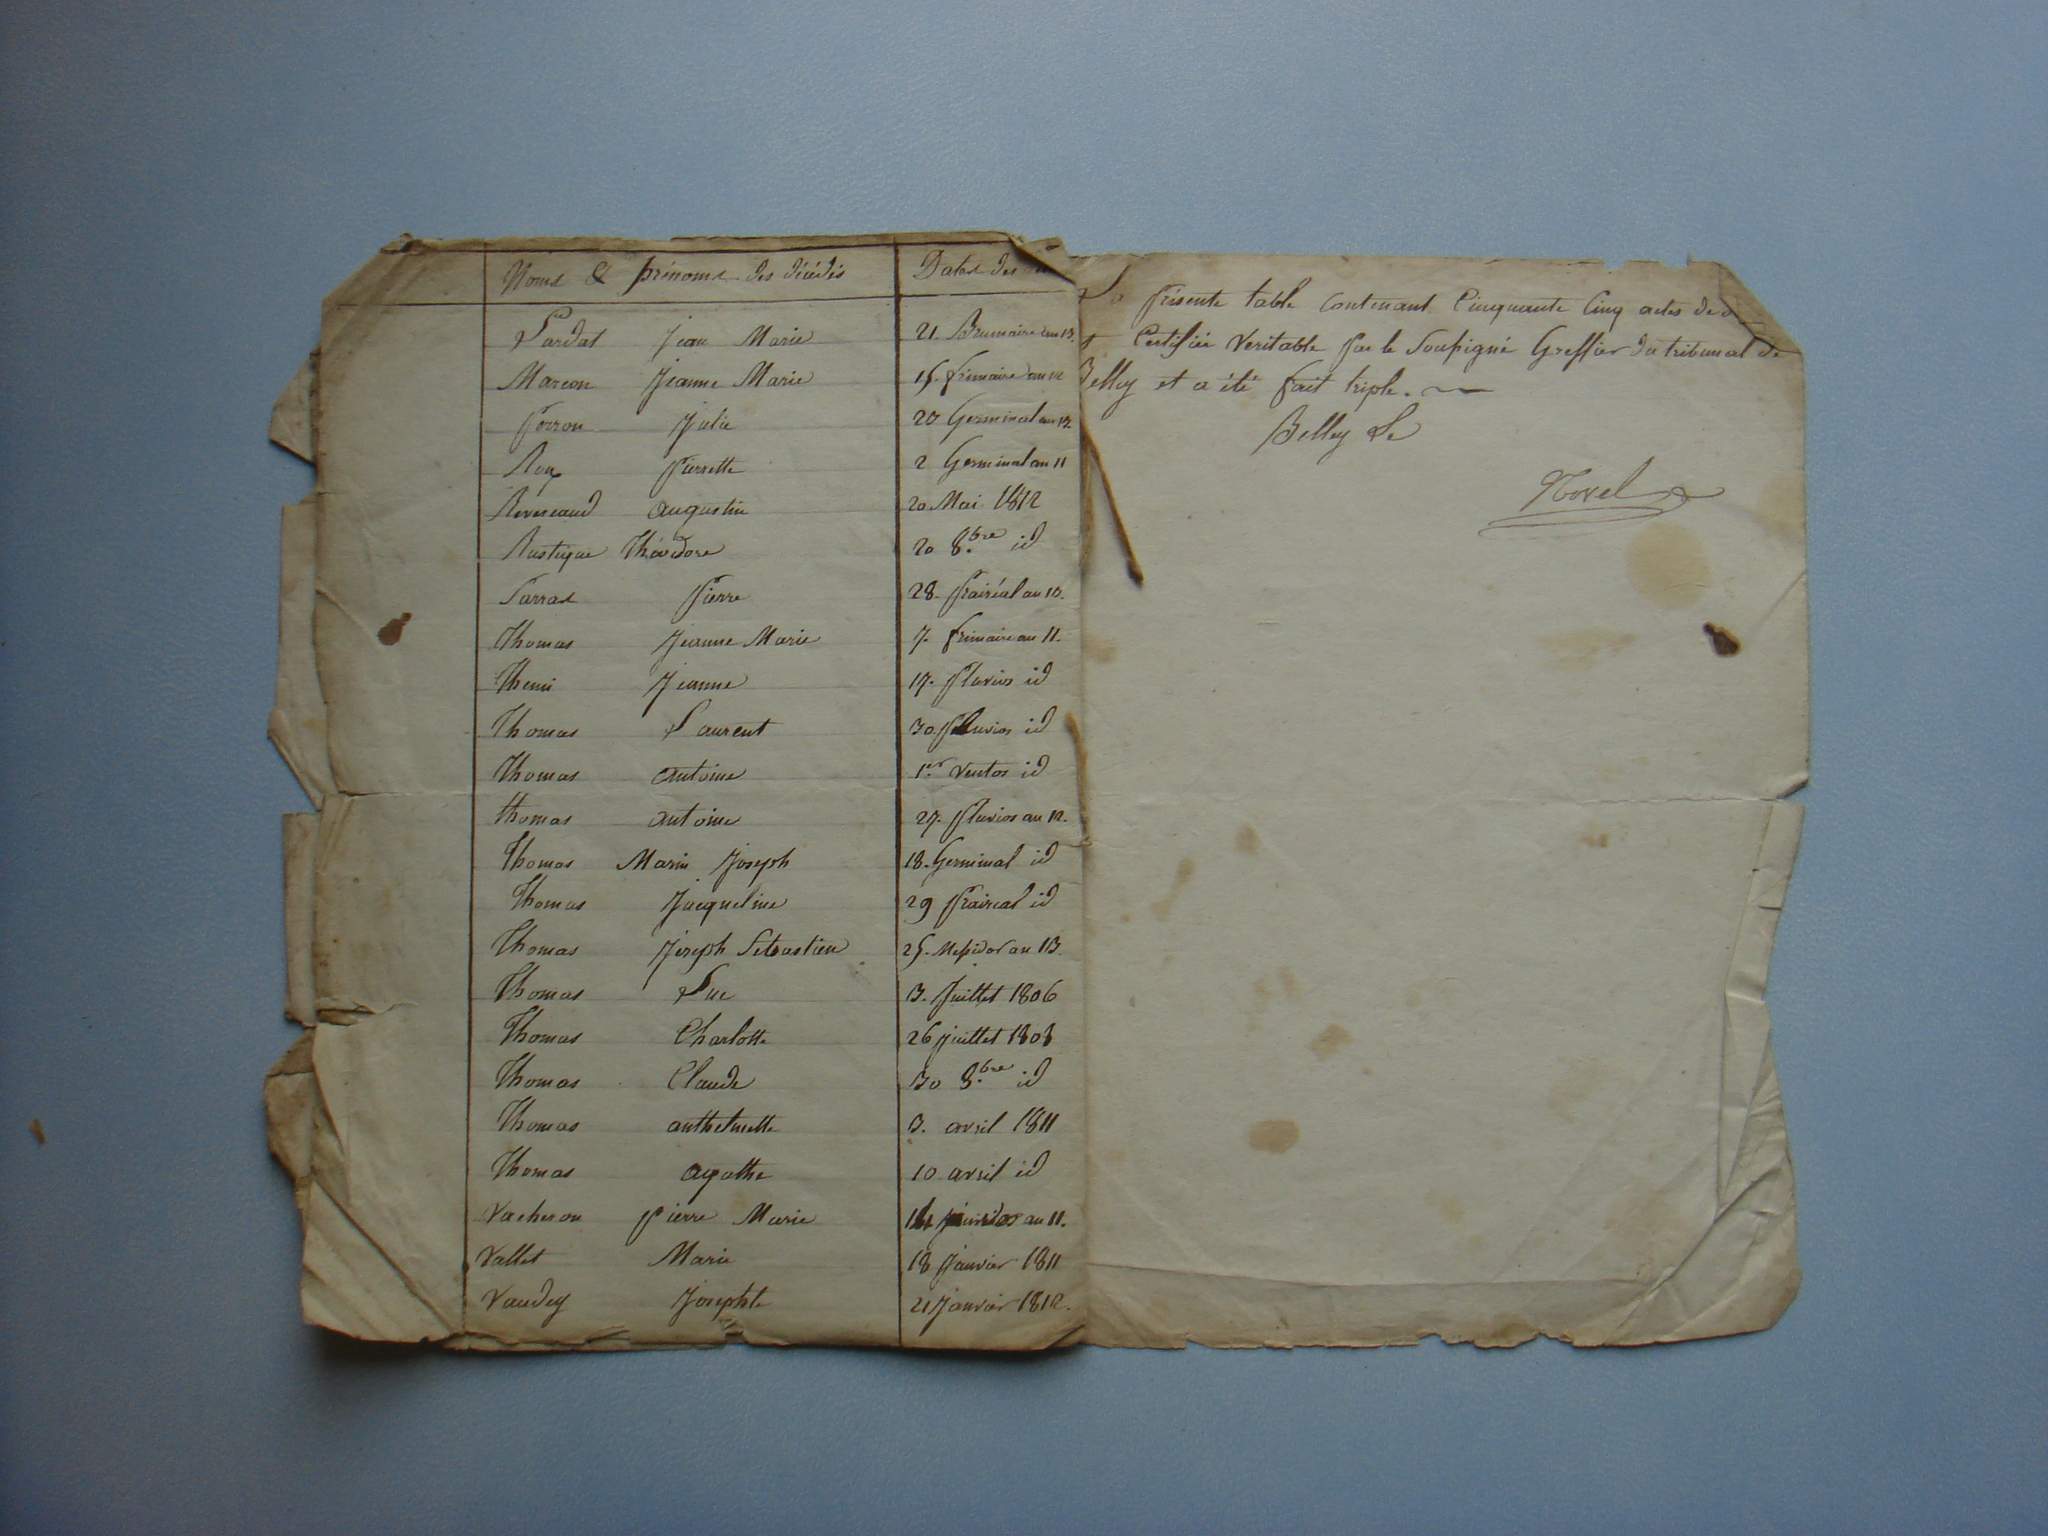 Noms & prénoms des décédés Dates des
Lardat Jean Marie 21. Brumaire an 13.
Marcon Jeanne Marie 15. frimaire an 12
Perron Julie 20 Germinal an 12
Roux Pierrette 2 Germinal an 11
Reverend augustin 20 Mai 1812
Rustique Théodore 20 8.bre id
Sarras Pierre 28. Prairéal an 10.
Thomas Jeanne Marie 7. frimaire an 11.
Jeanne 17. Pluvios id
Thomas Laurent 30. Pluvios id
Thomas antoine 1.er ventos id
thomas antoine 27. Pluvios an 12.
Thomas Marie Joseph 18. Germinal id
Thomas Jacqueline 29 Prairial id
Thomas Joseph Sebastien 25. Messidor an 13.
Thomas Luc 3. Juillet 1806
Thomas Charlotte 26 juillet 1808
Thomas Claude 30 8.bre id
Thomas anthelmette 3. avril 1811
Thomas agathe 10 avril id
Vacheron Pierre Marie an 11.
Vallet Marie 18 Janvier 1811
Vaudey Josephte 21 Janvier 1812.
La présente table contenant Cinquante Cinq actes de
Certifiée Veritable par le Soussigné Greffier du tribunal de
Belley et a été fait triple.
Belley Le
Morel